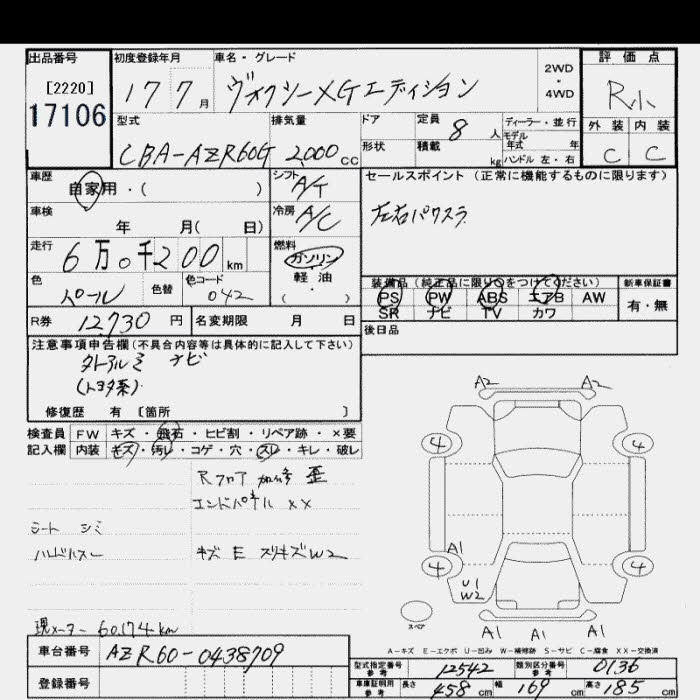 出品番号
[2220]
17106
初度登録年月
17 7月
車名・グレード
ヴォクシーXGエディション
2WD
・
4WD
評価点
R小
外装 内装
C C
型式
CBA-AZR60G
排気量
2,000cc
ドア
形状
定員 8人
積載 kg
ディーラー・並行
モデル
年式 年
ハンドル 左・右
車歴
自家用・( )
シフト A/T
セールスポイント(正常に機能するものに限ります)
左右パワスラ
車検
年 月( 日)
冷房 A/C
走行
6万0千200km
燃料
ガソリン
軽油
( )
色
パール
色替
色コード
042
装備品(純正品に限り○をつけてください)
PS PW ABS エアB AW
SR ナビ TV カワ
新車保証書
有・無
R券 12,730円
名変期限 月 日
後日品
注意事項申告欄(不具合内容等は具体的に記入して下さい)
外アルミ ナビ
(トヨタ系)
修復歴 有 [箇所 ]
検査員 FW キズ・飛石・ヒビ割・リペア跡・×要
記入欄 内装 キズ・汚レ・コゲ・穴・スレ・キレ・破レ
Rフロア 加修 歪
エンドパネル XX
シート シミ
キズ E スリキズW2
現メーター 60,174km
A2 A2
4 4
A1
4 4
U1
W2
スペア
A1 A1 A1
A-キズ E-エクボ U-凹み W-補修跡 S-サビ C-腐食 XX-交換済
車台番号 AZR60-0438709
登録番号
型式指定番号
参考
12542
類別区分番号
参考
0136
車庫証明用
参考
長さ 458cm 幅 169cm 高さ 185cm